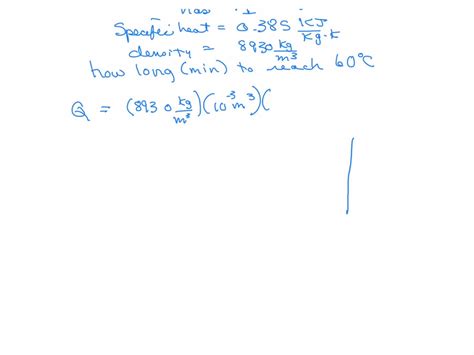 Specific heat = 0.385 KJ/Kg·K
density = 8930 kg/m³
how long (min) to reach 60°C
Q = (8930 kg/m³)(10⁻³m³)(